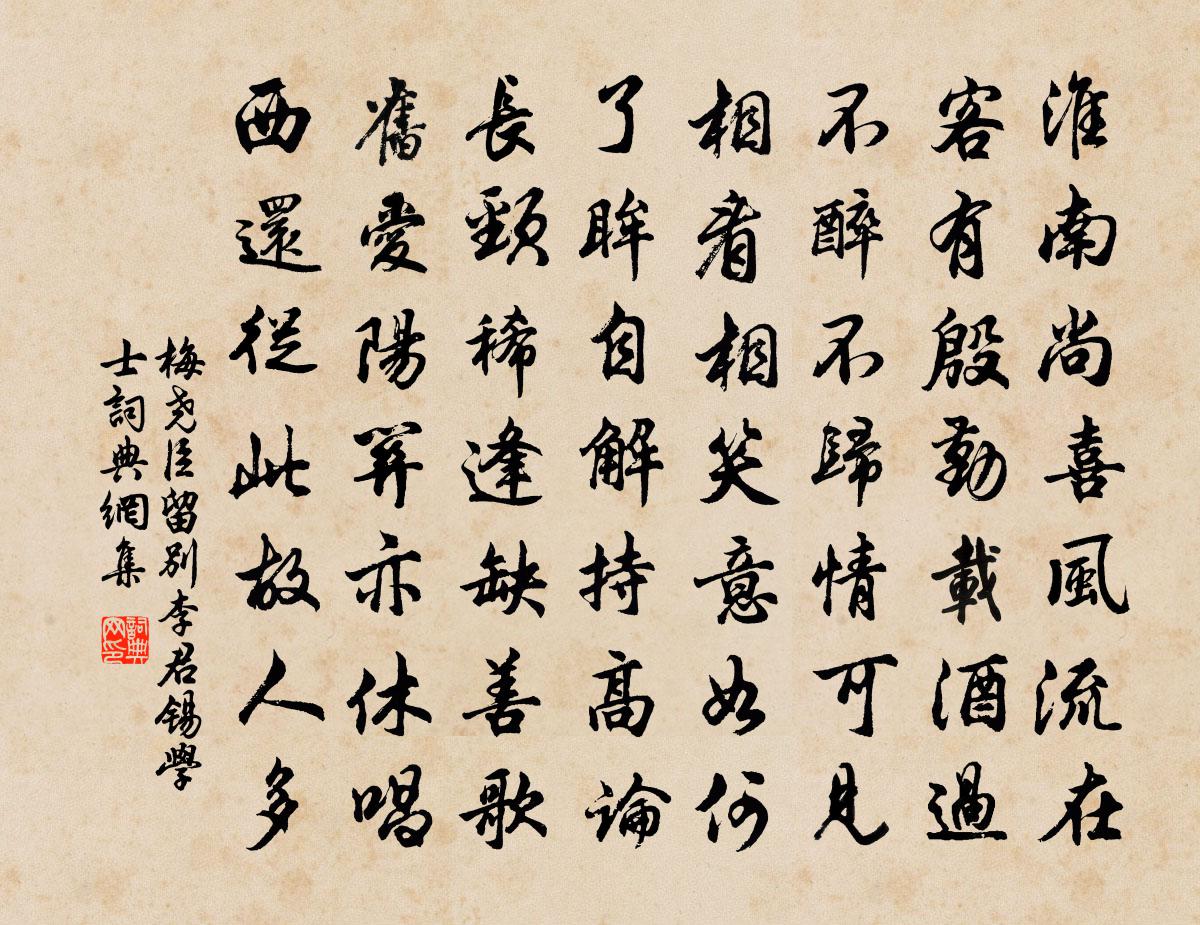 淮南尚喜風流在
客有殷勤載酒過
不醉不歸情可見
相看相笑意如何
了眸自解持高論
長頸稀逢缺善歌
舊愛陽關亦休唱
西還從此故人多
梅堯臣留別李君錫學
士詞典網集
詞典网印